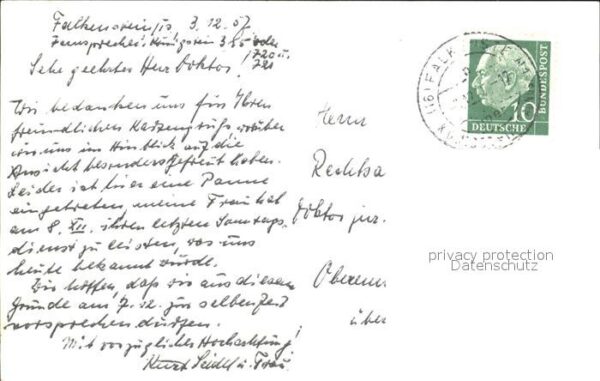 Falkenstein/Ts 3.12.57
Fernsprecher: Königstein 355 oder
720 u.
721
Sehr geehrter Herr Doktor!
Wir bedanken uns für Ihren
freundlichen Kartengruß, worüber
wir uns im Hinblick auf die
Aussicht besonders gefreut haben.
Leider ist hier eine Panne
eingetreten, meine Frau hat
am 8. XII. ihren letzten Sonntags-
dienst zu leisten, was uns
heute bekannt wurde.
Wir hoffen, daß wir aus diesem
Grunde am 7.12. zur selben Zeit
vorsprechen dürfen.
Mit vorzüglicher Hochachtung!
Kurt Seidel u. Frau
Herrn
Rechtsa
Doktor jur.
Oberur
über
FALKENSTEIN
10
DEUTSCHE
BUNDESPOST
privacy protection
Datenschutz